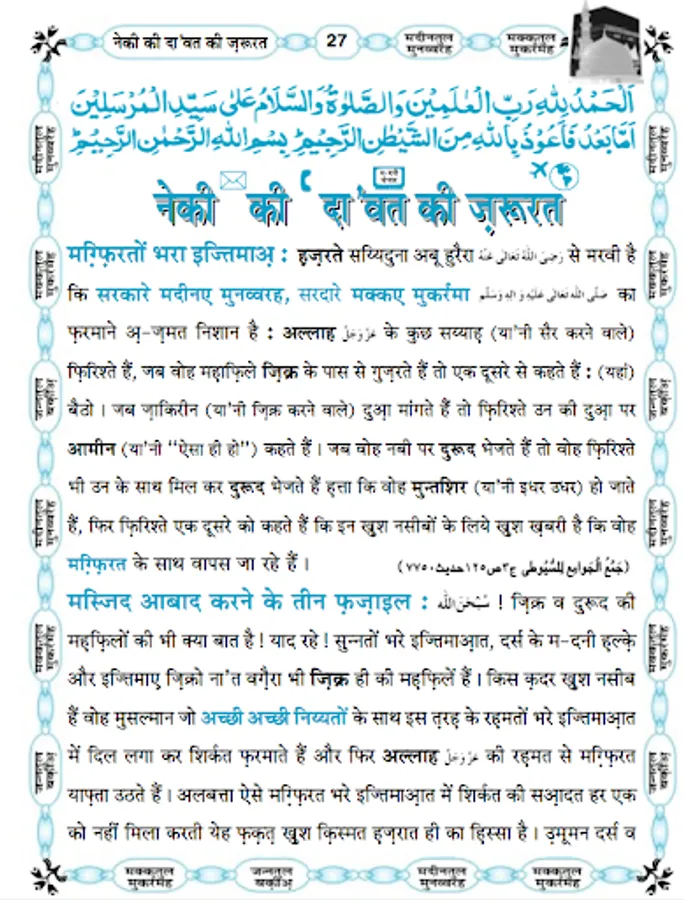 नेकी की दा'वत की ज़रूरत
27
मदीनतुल मुनव्वरह
मक्कतुल मुकर्रमह
اَلْحَمْدُ لِلّٰهِ رَبِّ الْعٰلَمِيْنَ وَالصَّلٰوةُ وَالسَّلَامُ عَلٰى سَيِّدِ الْمُرْسَلِيْنَ
اَمَّا بَعْدُ فَاَعُوْذُ بِاللّٰهِ مِنَ الشَّيْطٰنِ الرَّجِيْمِ ؕ بِسْمِ اللّٰهِ الرَّحْمٰنِ الرَّحِيْمِ ؕ
नेकी की दा'वत की ज़रूरत
मग़्फ़िरतों भरा इज्तिमाअ़ : हज़रते सय्यिदुना अबू हुरैरा رَضِىَ اللّٰهُ تَعَالٰى عَنْهُ से मरवी है
कि सरकारे मदीनए मुनव्वरह, सरदारे मक्कए मुकर्रमा صَلَّى اللّٰهُ تَعَالٰى عَلَيْهِ وَاٰلِهٖ وَسَلَّم का
फ़रमाने अ़-ज़मत निशान है : अल्लाह عَزَّوَجَلَّ के कुछ सय्याह (या'नी सैर करने वाले)
फ़िरिश्ते हैं, जब वोह महाफ़िले ज़िक्र के पास से गुज़रते हैं तो एक दूसरे से कहते हैं : (यहां)
बैठो । जब ज़ाकिरीन (या'नी ज़िक्र करने वाले) दुआ़ मांगते हैं तो फ़िरिश्ते उन की दुआ़ पर
आमीन (या'नी "ऐसा ही हो") कहते हैं । जब वोह नबी पर दुरूद भेजते हैं तो वोह फ़िरिश्ते
भी उन के साथ मिल कर दुरूद भेजते हैं हत्ता कि वोह मुन्तशिर (या'नी इधर उधर) हो जाते
हैं, फिर फ़िरिश्ते एक दूसरे को कहते हैं कि इन खुश नसीबों के लिये खुश ख़बरी है कि वोह
मग़्फ़िरत के साथ वापस जा रहे हैं ।
(جَمْعُ الْجَوامِع لِلسُّيُوطى ج٣ص١٢٥حديث٧٧٥٠)
मस्जिद आबाद करने के तीन फ़ज़ाइल : سُبْحٰنَ اللّٰه ! ज़िक्र व दुरूद की
महफ़िलों की भी क्या बात है ! याद रहे ! सुन्नतों भरे इज्तिमाआ़त, दर्स के म-दनी हल्के़
और इज्तिमाए ज़िक्रो ना'त वग़ैरा भी ज़िक्र ही की महफ़िलें हैं । किस क़दर खुश नसीब
हैं वोह मुसल्मान जो अच्छी अच्छी निय्यतों के साथ इस त़रह़ के रहमतों भरे इज्तिमाआ़त
में दिल लगा कर शिर्कत फ़रमाते हैं और फिर अल्लाह عَزَّوَجَلَّ की रहमत से मग़्फ़िरत
याफ्ता उठते हैं । अलबत्ता ऐसे मग़्फ़िरत भरे इज्तिमाआ़त में शिर्कत की सआ़दत हर एक
को नहीं मिला करती येह फ़क़त़ खुश क़िस्मत हज़रात ही का हिस्सा है । उ़मूमन दर्स व
मक्कतुल मुकर्रमह
जन्नतुल बक़ीअ़
मदीनतुल मुनव्वरह
मक्कतुल मुकर्रमह